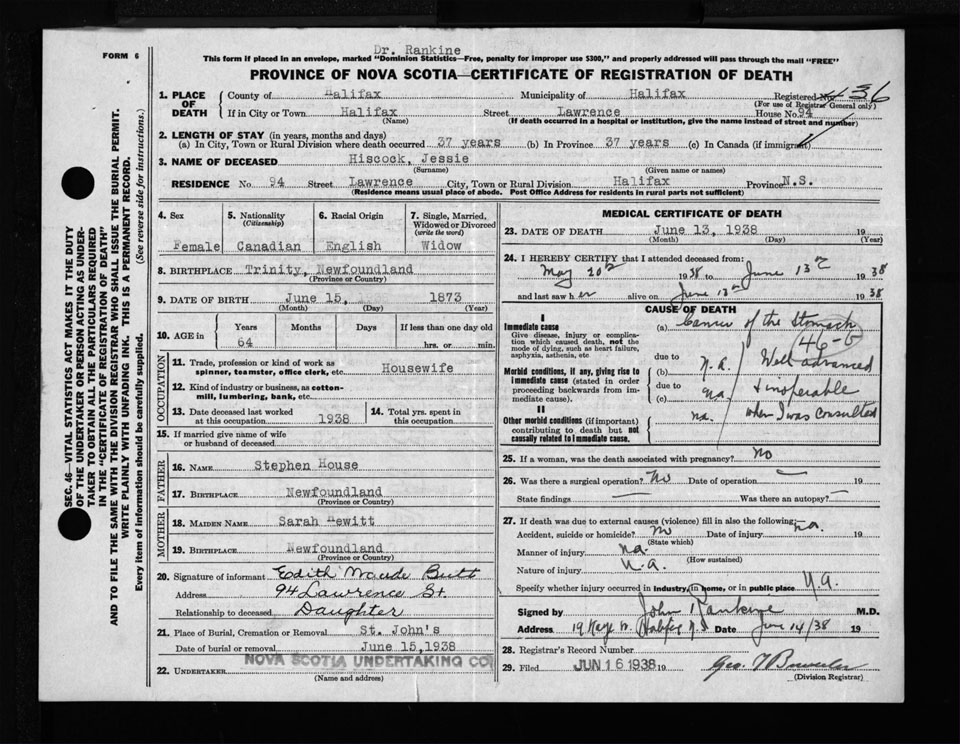 Dr. Rankine
FORM 6
This form if placed in an envelope, marked "Dominion Statistics—Free, penalty for improper use $300," and properly addressed will pass through the mail "FREE"
PROVINCE OF NOVA SCOTIA—CERTIFICATE OF REGISTRATION OF DEATH
SEC. 46—VITAL STATISTICS ACT MAKES IT THE DUTY
OF THE UNDERTAKER OR PERSON ACTING AS UNDER-
TAKER TO OBTAIN ALL THE PARTICULARS REQUIRED
IN THE "CERTIFICATE OF REGISTRATION OF DEATH"
AND TO FILE THE SAME WITH THE DIVISION REGISTRAR WHO SHALL ISSUE THE BURIAL PERMIT.
WRITE PLAINLY WITH UNFADING INK. THIS IS A PERMANENT RECORD.
Every item of information should be carefully supplied. (See reverse side for instructions.)
1. PLACE OF DEATH County of Halifax Municipality of Halifax Registered No. 436
(For use of Registrar General only)
If in City or Town Halifax Street Lawrence House No. 94
(Name) (If death occurred in a hospital or institution, give the name instead of street and number)
2. LENGTH OF STAY (in years, months and days)
(a) In City, Town or Rural Division where death occurred 37 years (b) In Province 37 years (c) In Canada (if immigrant)
3. NAME OF DECEASED Hiscock, Jessie
(Surname) (Given name or names)
RESIDENCE No. 94 Street Lawrence City, Town or Rural Division Halifax Province N.S.
(Residence means usual place of abode. Post Office Address for residents in rural parts not sufficient)
4. Sex 5. Nationality (Citizenship) 6. Racial Origin 7. Single, Married, Widowed or Divorced (write the word)
Female Canadian English Widow
8. BIRTHPLACE Trinity, Newfoundland
(Province or Country)
9. DATE OF BIRTH June 15, 1873
(Month) (Day) (Year)
10. AGE in Years Months Days If less than one day old
64 hrs. or min.
OCCUPATION
11. Trade, profession or kind of work as
spinner, teamster, office clerk, etc. Housewife
12. Kind of industry or business, as cotton-
mill, lumbering, bank, etc.
13. Date deceased last worked at this occupation 1938 14. Total yrs. spent in this occupation
15. If married give name of wife
or husband of deceased
FATHER
16. NAME Stephen House
17. BIRTHPLACE Newfoundland
(Province or Country)
MOTHER
18. MAIDEN NAME Sarah Hewitt
19. BIRTHPLACE Newfoundland
(Province or Country)
20. Signature of informant Edith Maude Butt
Address 94 Lawrence St.
Relationship to deceased Daughter
21. Place of Burial, Cremation or Removal St. John's
Date of burial or removal June 15, 1938
22. UNDERTAKER NOVA SCOTIA UNDERTAKING CO
(Name and address)
MEDICAL CERTIFICATE OF DEATH
23. DATE OF DEATH June 13, 1938 19
(Month) (Day) (Year)
24. I HEREBY CERTIFY that I attended deceased from:
May 20th 1938 to June 13th 1938
and last saw her alive on June 13th 1938
CAUSE OF DEATH
I
Immediate cause
Give disease, injury or complica-
tion which caused death, not the
mode of dying, such as heart failure,
asphyxia, asthenia, etc
(a) Cancer of the Stomach
46-b
due to
(b) n.a. Well advanced
Morbid conditions, if any, giving rise to
immediate cause (stated in order
proceeding backwards from im-
mediate cause).
due to
(c) na. & inoperable
II
Other morbid conditions (if important)
contributing to death but not
causally related to immediate cause.
na. when I was consulted
25. If a woman, was the death associated with pregnancy? no
26. Was there a surgical operation? No Date of operation 19
State findings Was there an autopsy?
27. If death was due to external causes (violence) fill in also the following:
Accident, suicide or homicide? no Date of injury na. 19
(State which)
Manner of injury na.
(How sustained)
Nature of injury n.a.
Specify whether injury occurred in industry, in home, or in public place n.a.
Signed by John Rankine M.D.
Address 19 Kaye St. Halifax N.S. Date June 14/38 19
28. Registrar's Record Number
29. Filed JUN 16 1938 19
(Division Registrar)